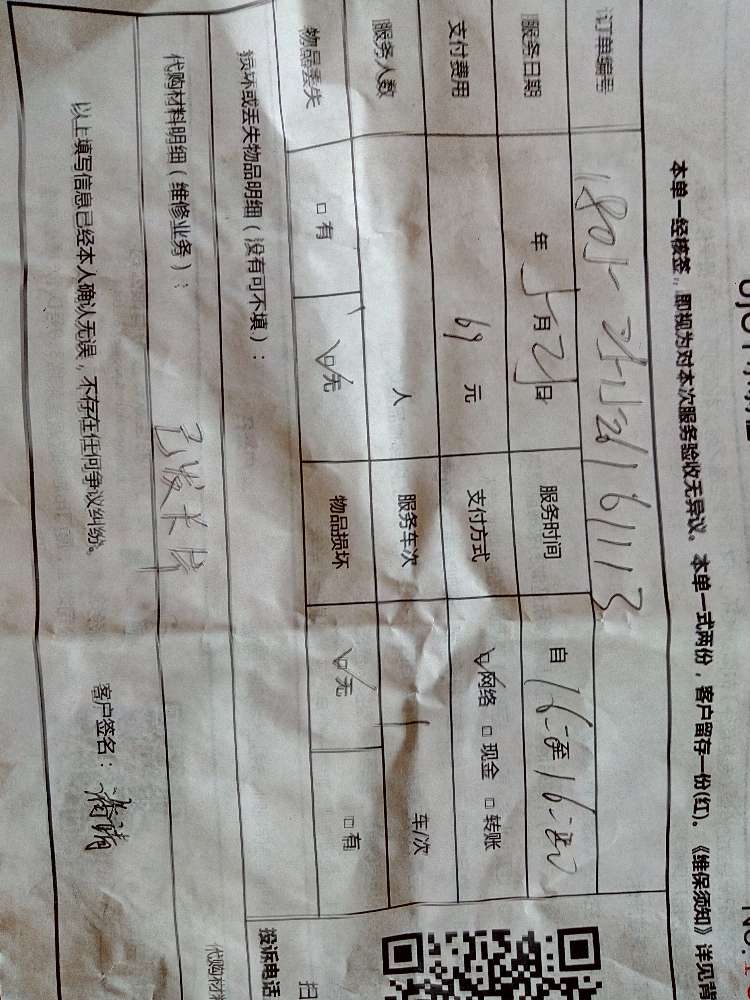 本单一经核签，即视为对本次服务验收无异议。本单一式两份，客户留存一份(红)。《维保须知》详见背
订单编号
服务日期 年 5月 日 服务时间 自
支付费用 69 元 支付方式 ☑网络 □现金 □转账
服务人数 人 服务车次 1 车/次
物品丢失 □有 ☑无 物品损坏 ☑无 □有
损坏或丢失物品明细（没有可不填）：
代购材料明细（维修业务）：
已发卡片
以上填写信息已经本人确认无误，不存在任何争议纠纷。 客户签名：
扫
投诉电话
代购材料